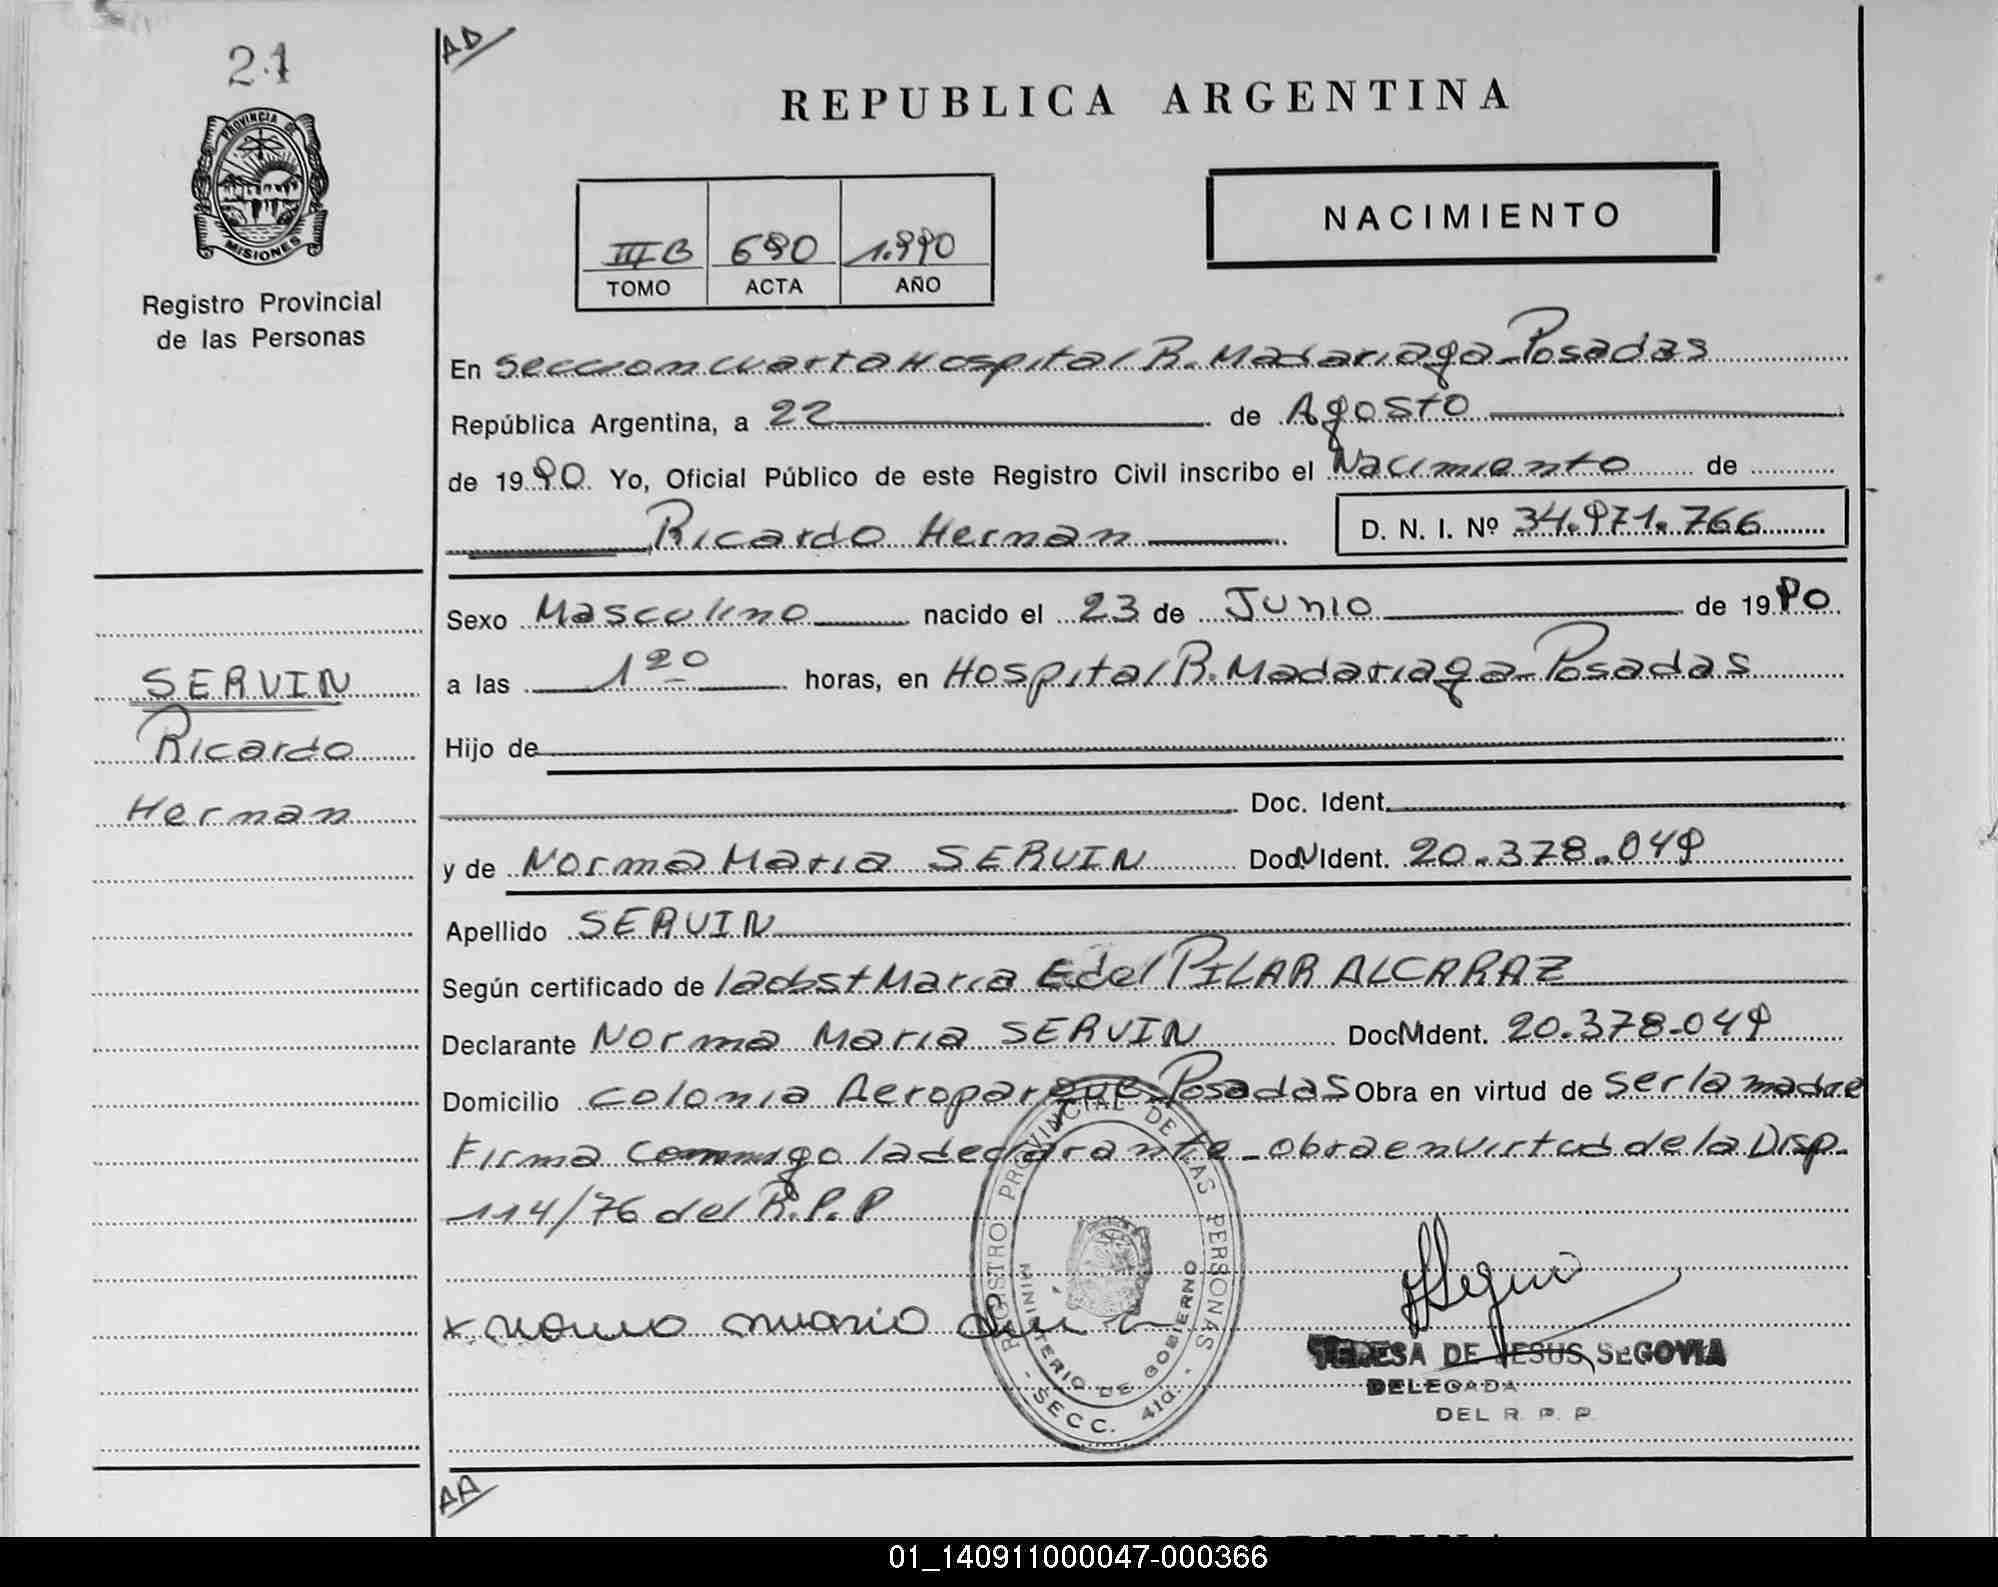 21
AD
REPUBLICA ARGENTINA
PROVINCIA DE
MISIONES
Registro Provincial
de las Personas
NACIMIENTO
III B 690 1.990
TOMO ACTA AÑO
En Seccion cuarta Hospital R. Madariaga - Posadas
República Argentina, a 22 de Agosto
de 1990 Yo, Oficial Público de este Registro Civil inscribo el Nacimiento de
Ricardo Hernan D. N. I. Nº 34.971.766
Sexo Masculino nacido el 23 de Junio de 1990
a las 1 20 horas, en Hospital R. Madariaga - Posadas
Hijo de
Doc. Ident.
y de Norma Maria SERVIN Doc N Ident. 20.378.049
Apellido SERVIN
Según certificado de la obst Maria E del PILAR ALCARAZ
Declarante Norma Maria SERVIN Doc N Ident. 20.378.049
Domicilio colonia Aeroparque Posadas Obra en virtud de ser la madre
Firma Conmigo la declarante - obra en virtud de la Disp.
114/76 del R.P.P
SERVIN
Ricardo
Hernan
x
REGISTRO PROVINCIAL DE LAS PERSONAS
MINISTERIO DE GOBIERNO
- SECC. 4ta. -
TERESA DE JESUS SEGOVIA
DELEGADA
DEL R. P. P.
AA
01_140911000047-000366